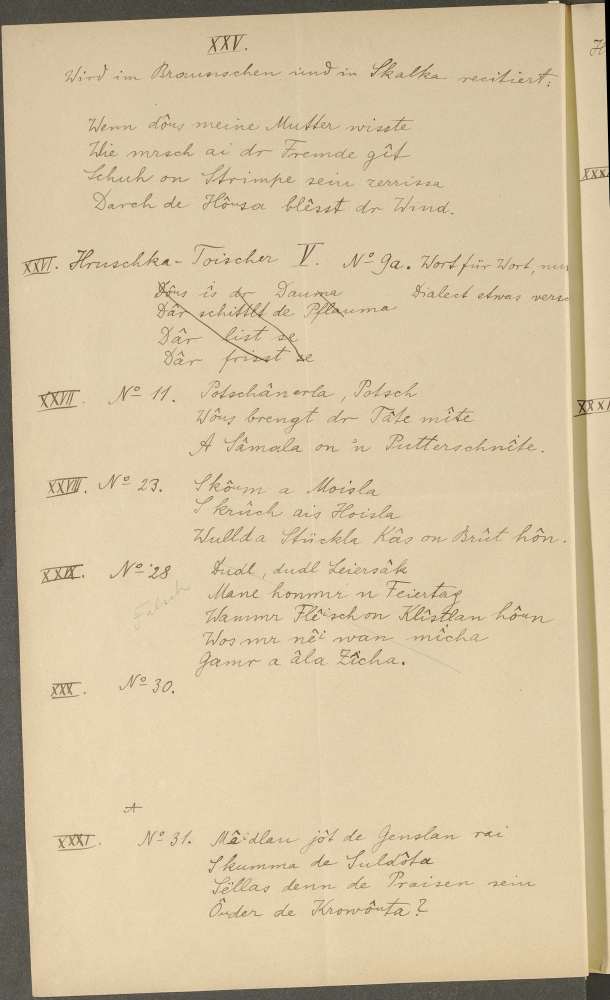 XXV.
Wird im Braunschen und in Skalka recitiert:
Wenn dôus meine Mutter wisste
Wie mrsch ai dr Fremde gît
Schuh on Strimpe sein zerrissa
Darch de Hôusa blêsst dr Wind.
XXVI. Hruschka-Toischer V. No 9a. Wort für Wort, nur
Dôus îs dr Dauma Dialect etwas
Dâr schittlt de Pflauma
Dâr list se
Dâr frisst se
XXVII. No 11. Potschânerla, Potsch
Wôus brengt dr Tâte mîte
A Sâmala on 'n Putterschnîte.
XXVIII. No 23. Skôum a Moisla
Skrûch ais Hoisla
Wullda Stückla Kâs on Brût hôn.
XXIX. No 28 Dudl, dudl Leiersâk
Mane honmr n Feiertag
Wammr Flêischon Klîstlan hôun
Wos mr nêi wan mîcha
Gamr a âla Zîcha.
XXX. No 30.
A
XXXI. No 31. Mâidlan jôt de Genslan rai
Skumma de Suldôta
Sëllas denn de Praisen sein
Ôuder de Krowôuta?